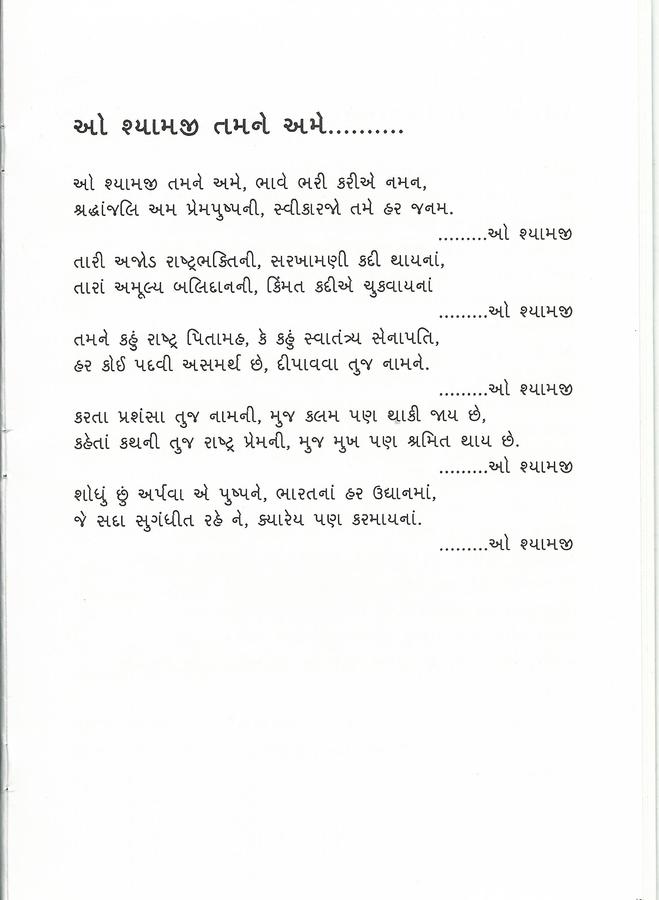 ઓ શ્યામજી તમને અમે..........
ઓ શ્યામજી તમને અમે, ભાવે ભરી કરીએ નમન,
શ્રદ્ધાંજલિ અમ પ્રેમપુષ્પની, સ્વીકારજો તમે હર જનમ.
.........ઓ શ્યામજી
તારી અજોડ રાષ્ટ્રભક્તિની, સરખામણી કદી થાયનાં,
તારાં અમૂલ્ય બલિદાનની, કિંમત કદીએ ચુકવાયનાં
.........ઓ શ્યામજી
તમને કહું રાષ્ટ્ર પિતામહ, કે કહું સ્વાતંત્ર્ય સેનાપતિ,
હર કોઈ પદવી અસમર્થ છે, દીપાવવા તુજ નામને.
.........ઓ શ્યામજી
કરતા પ્રશંસા તુજ નામની, મુજ કલમ પણ થાકી જાય છે,
કહેતાં કથની તુજ રાષ્ટ્ર પ્રેમની, મુજ મુખ પણ શ્રમિત થાય છે.
.........ઓ શ્યામજી
શોધું છું અર્પવા એ પુષ્પને, ભારતનાં હર ઉદ્યાનમાં,
જે સદા સુગંધીત રહે ને, ક્યારેય પણ કરમાયનાં.
.........ઓ શ્યામજી